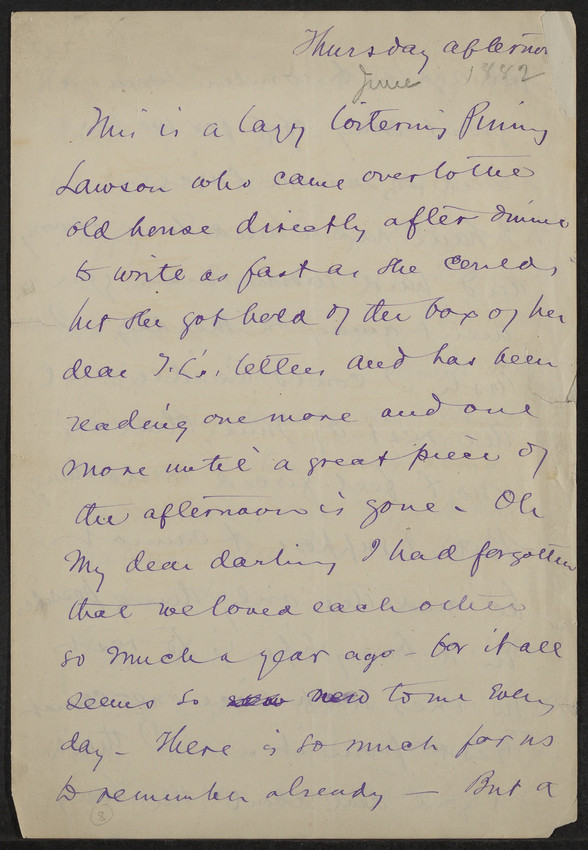 Thursday afternoon
June 1882
This is a lazy loitering Pinny
Lawson who came over to the
old house directly after dinner
to write as fast as she could,
but she got hold of the box of her
dear T. L's. letters and has been
reading one more and one
more until a great piece of
the afternoon is gone - Oh
my dear darling I had forgotten
that we loved each other
so much a year ago - for it all
seems so new to me every
day - There is so much for us
to remember already — But a
8